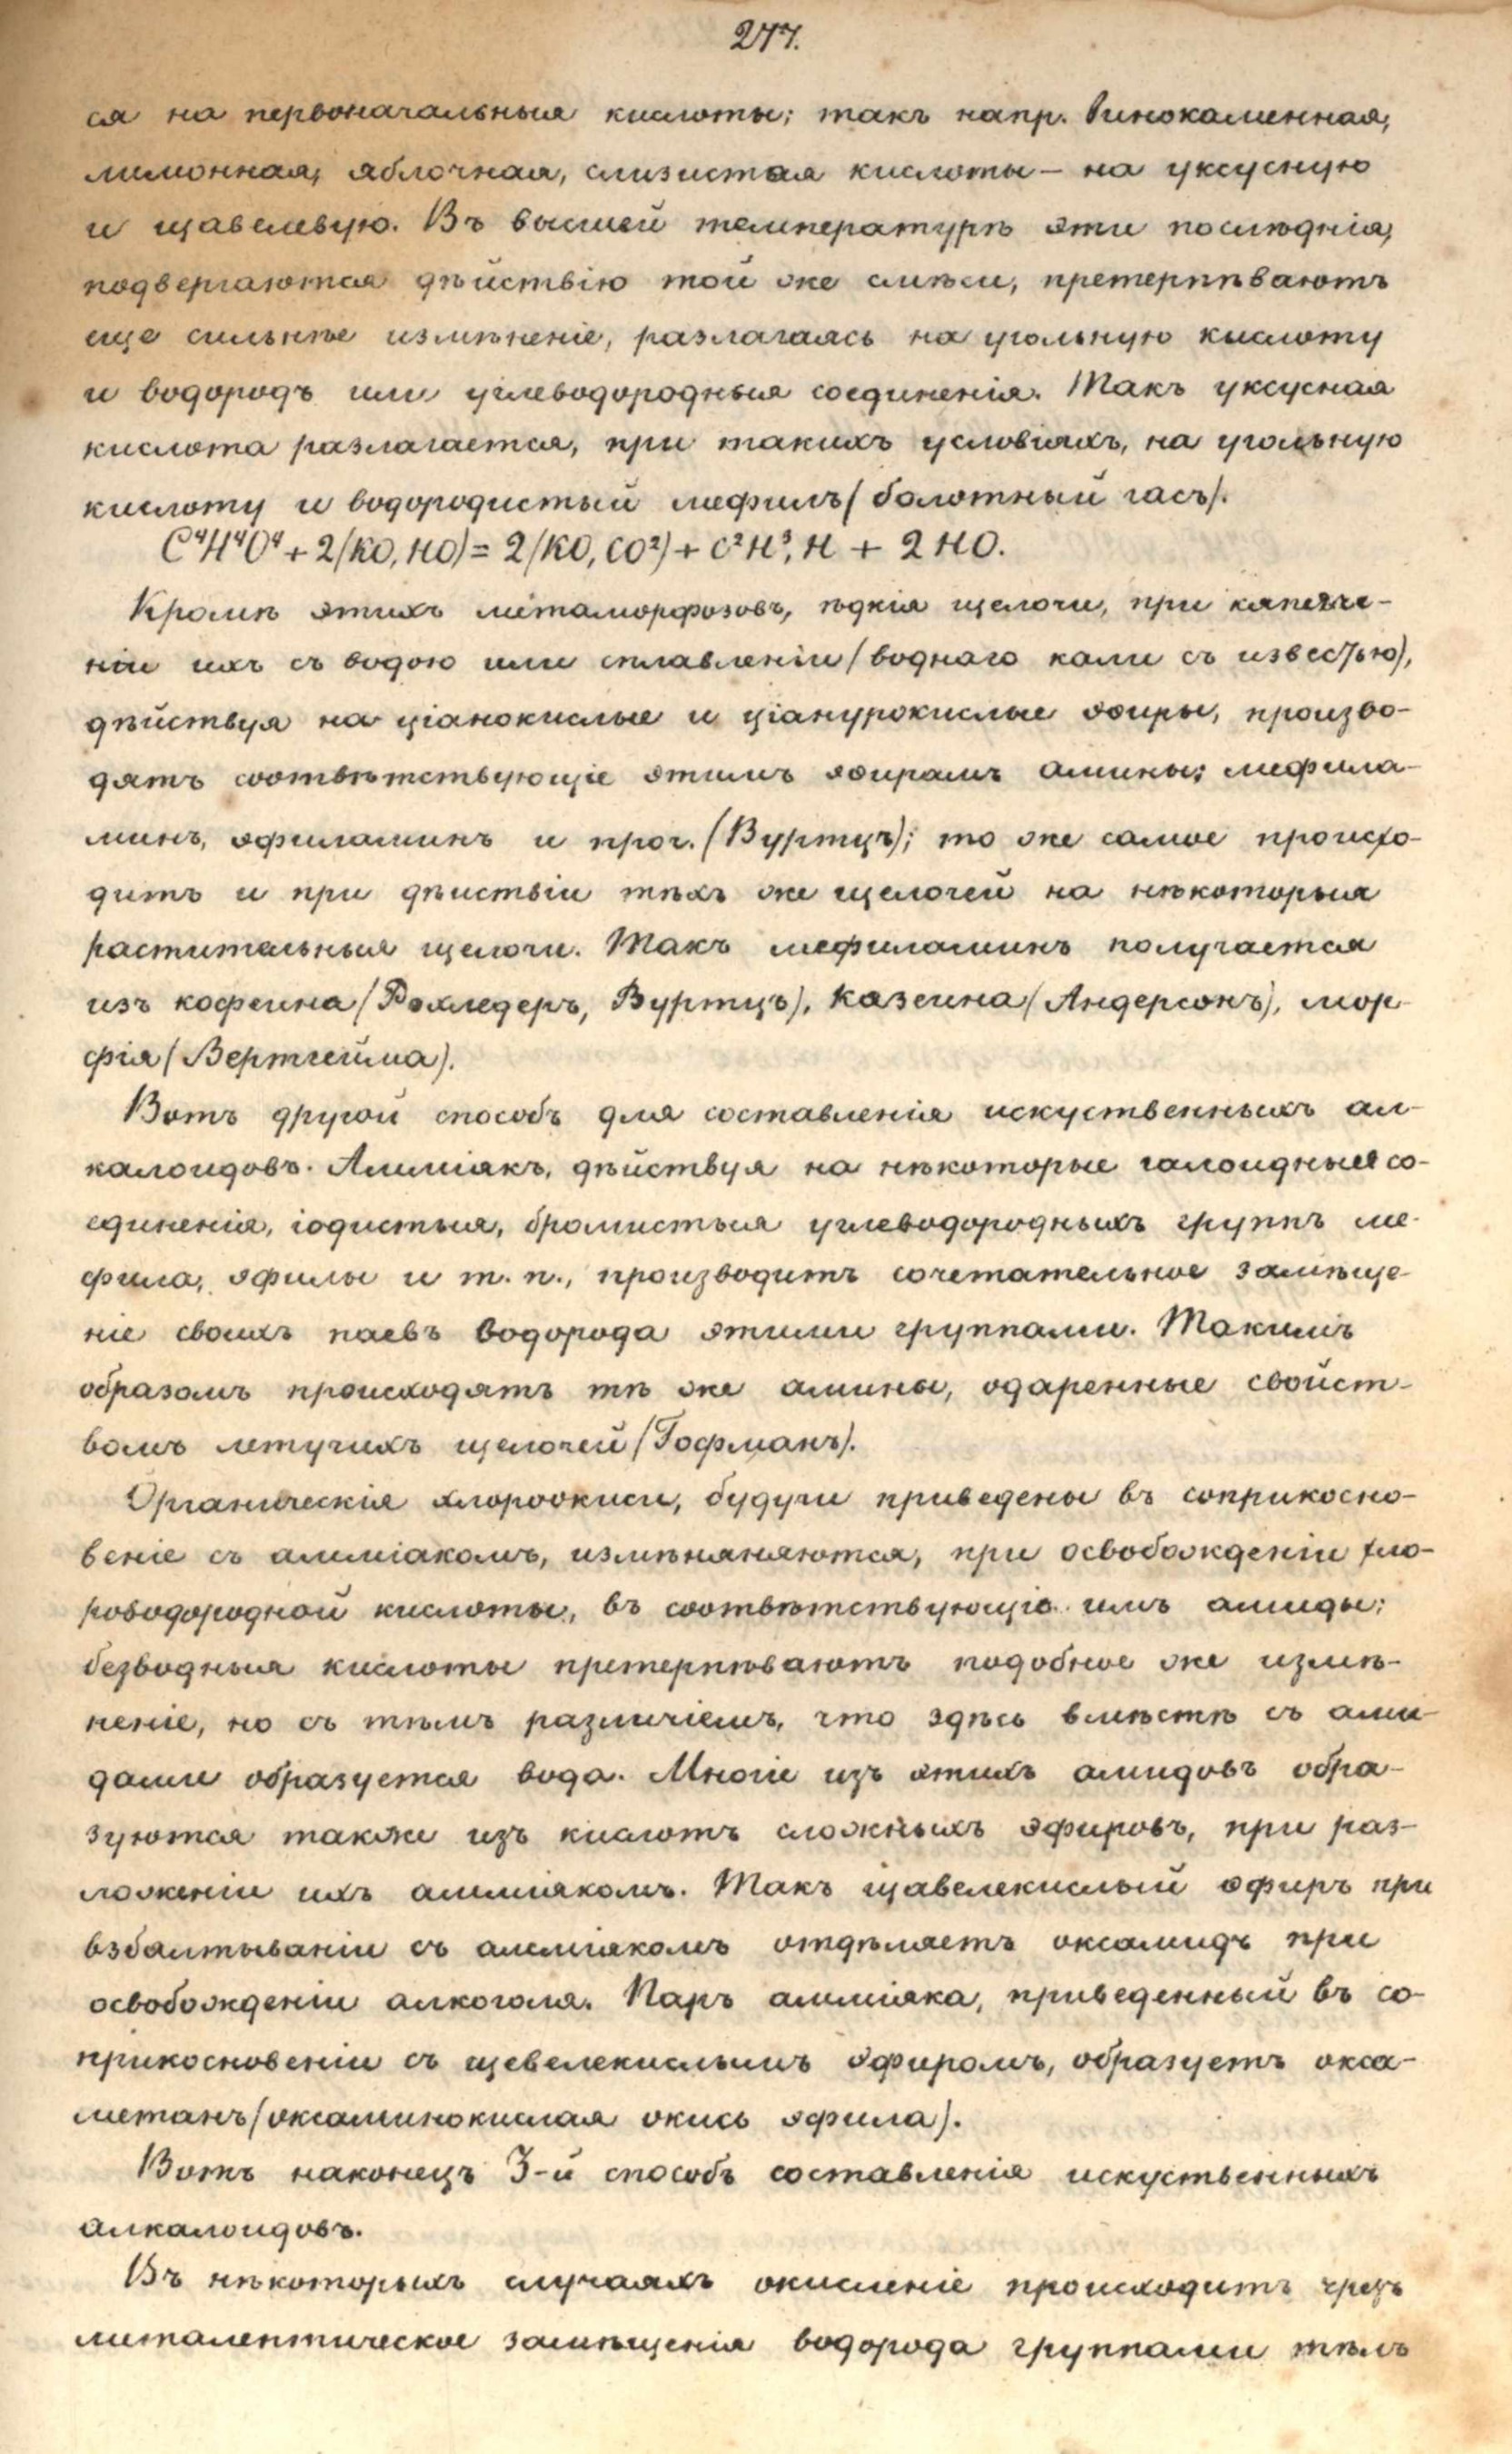 277.
ся на первоначальныя кислоты; такъ напр. винокаменная,
лимонная, яблочная, слизистая кислоты – на уксусную
и щавелевую. Въ высшей температурѣ эти послѣднія,
подвергаются дѣйствію той же смѣси, претерпѣваютъ
еще сильнѣе измѣненіе, разлагаясь на угольную кислоту
и водородъ или углеводородныя соединенія. Такъ уксусная
кислота разлагается, при такихъ условіяхъ, на угольную
кислоту и водородистый мефилъ (болотный гасъ).
C⁴H⁴O⁴ + 2(KO, HO) = 2(KO, CO²) + C²H³, H + 2HO.
Кромѣ этихъ метаморфозовъ, ѣдкія щелочи, при кипяче-
ніи ихъ съ водою или сплавленіи (воднаго кали съ известью),
дѣйствуя на ціанокислые и ціанурокислые эѳиры, произво-
дятъ соотвѣтствующіе этимъ эѳирамъ амины; мефила-
минъ, эфиламинъ и проч. (Вуртцъ); то же самое происхо-
дитъ и при дѣйствіи тѣхъ же щелочей на нѣкоторыя
растительныя щелочи. Такъ мефиламинъ получается
изъ кофеина (Рохледеръ, Вуртцъ), казеина (Андерсонъ), мор-
фія (Вертгейма).
Вотъ другой способъ для составленія искуственныхъ ал-
калоидовъ. Амміякъ, дѣйствуя на нѣкоторые галоидныя со-
единенія, іодистыя, бромистыя углеводородныхъ группъ ме-
фила, эфилы и т. п., производитъ сочетательное замѣще-
ніе своихъ паевъ водорода этими группами. Такимъ
образомъ происходятъ тѣ же амины, одаренные свойст-
вомъ летучихъ щелочей (Гофманъ).
Органическія хлороокиси, будучи приведены въ соприкосно-
веніе съ амміакомъ, измѣняняются, при освобожденіи хло-
роводородной кислоты, въ соотвѣтствующіе имъ амиды;
безводныя кислоты претерпѣваютъ подобное же измѣ-
неніе, но съ тѣмъ различіемъ, что здѣсь вмѣстѣ съ ами-
дами образуется вода. Многіе изъ этихъ амидовъ обра-
зуются также изъ кислотъ сложныхъ эфировъ, при раз-
ложеніи ихъ амміякомъ. Такъ щавелекислый эфиръ при
взбалтываніи съ амміякомъ отдѣляетъ оксамидъ при
освобожденіи алкоголя. Паръ амміяка, приведенный въ со-
прикосновеніи съ щевелекислымъ эфиромъ, образуетъ окса-
метанъ (оксаминокислая окись эфила).
Вотъ наконецъ 3-й способъ составленія искуственныхъ
алкалоидовъ.
Въ нѣкоторыхъ случаяхъ окисленіе происходитъ чрезъ
миталептическое замѣщенія водорода группами тѣмъ